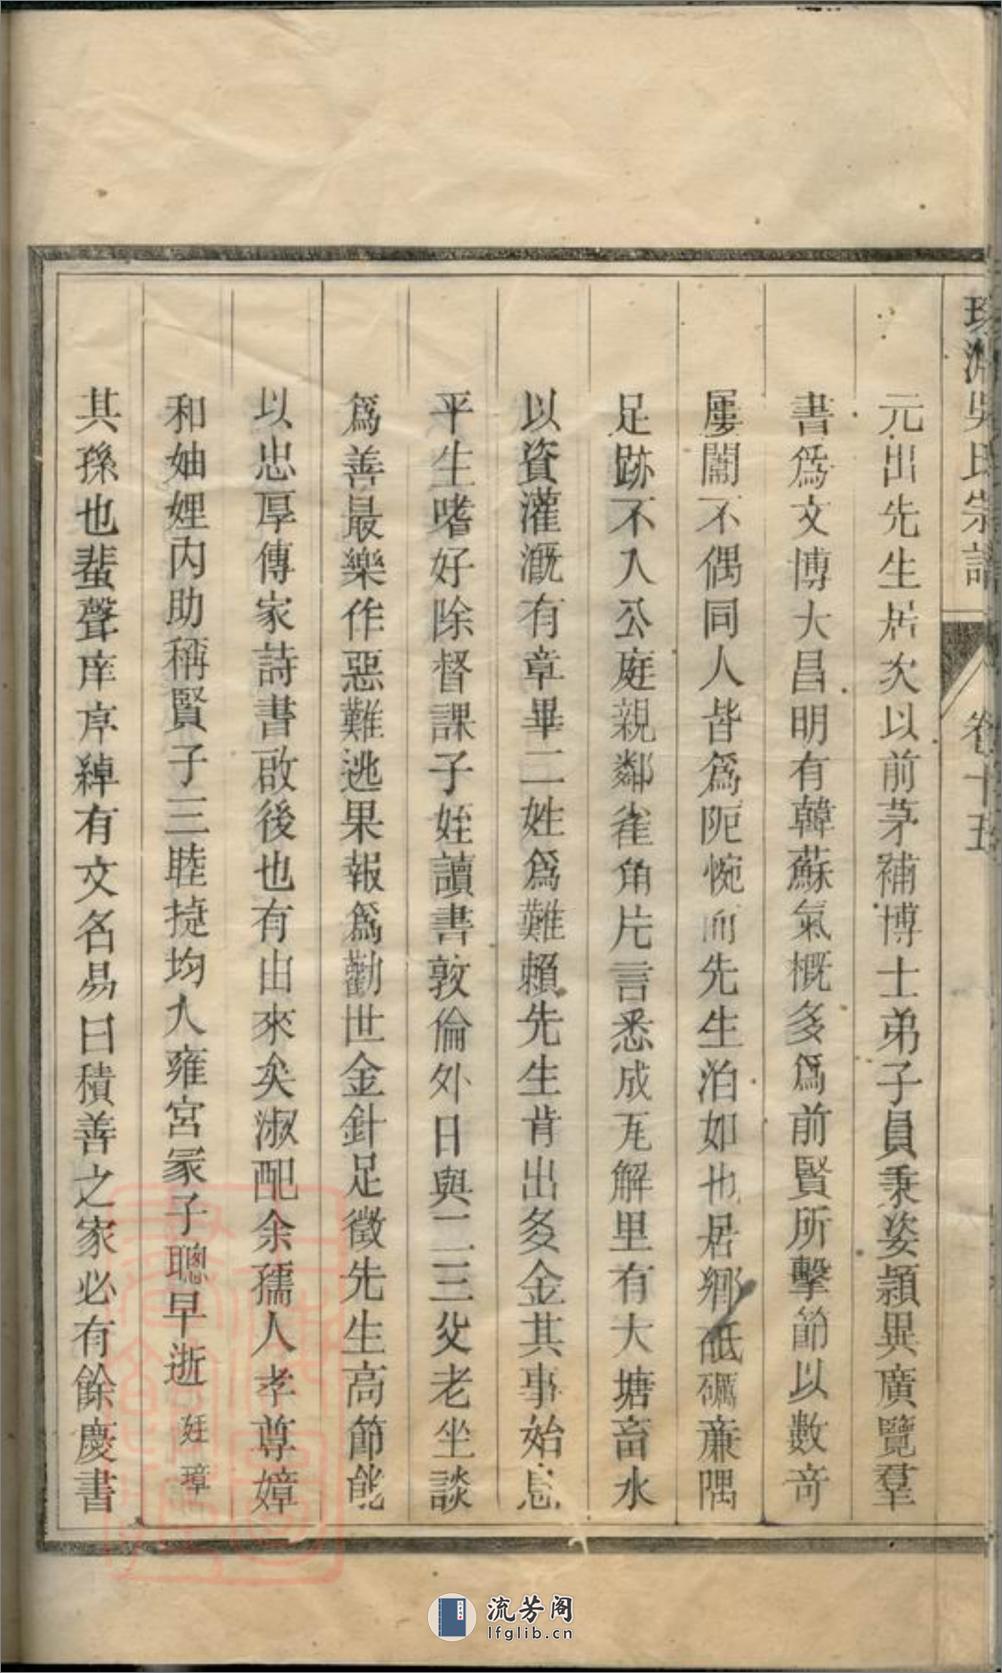 吳氏宗譜 卷十五
元出先生居次以前茅補博士弟子員秉姿穎異廣覽羣
書爲文博大昌明有韓蘇氣概多爲前賢所擊節以數奇
屢闈不偶同人皆爲阨惋而先生泊如也居鄉砥礪廉隅
足跡不入公庭親鄰雀角片言悉成瓦解里有大塘畜水
以資灌溉有章畢二姓爲難賴先生肯出多金其事始息
平生嗜好除督課子姪讀書敦倫外日與二三父老坐談
爲善最樂作惡難逃果報爲勸世金針足徵先生高節能
以忠厚傳家詩書啟後也有由來矣淑配余孺人孝尊嫜
和妯娌內助稱賢子三睦捷均入雍宮冡子聰早逝 姪璋
其孫也蜚聲庠序綽有文名易曰積善之家必有餘慶書
流芳阁
lfglib.cn